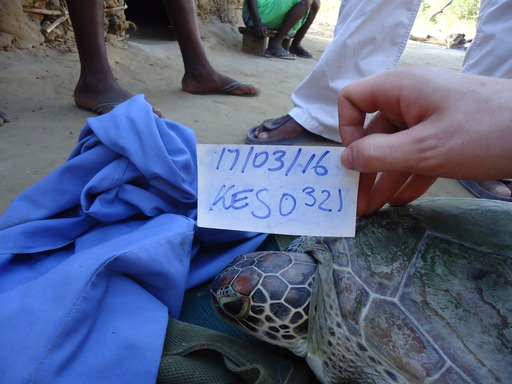 17/03/16
KES0321